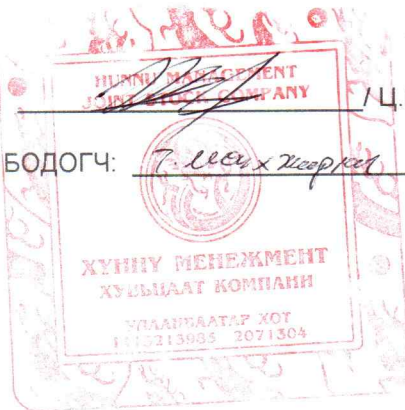 HUNNU MANAGEMENT
JOINT STOCK COMPANY
/Ц.
БОДОГЧ:
ХҮННҮ МЕНЕЖМЕНТ
ХУВЬЦААТ КОМПАНИ
УЛААНБААТАР ХОТ
2071304